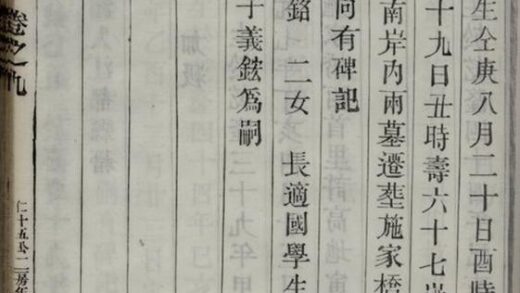 生仝庚八月二十日酉時
十九日丑時壽六十七
南岸內兩墓遷塟施家橋
向有碑記
銘 二女 長適國學生
子義鋐爲嗣
卷之九
仁十五公二房